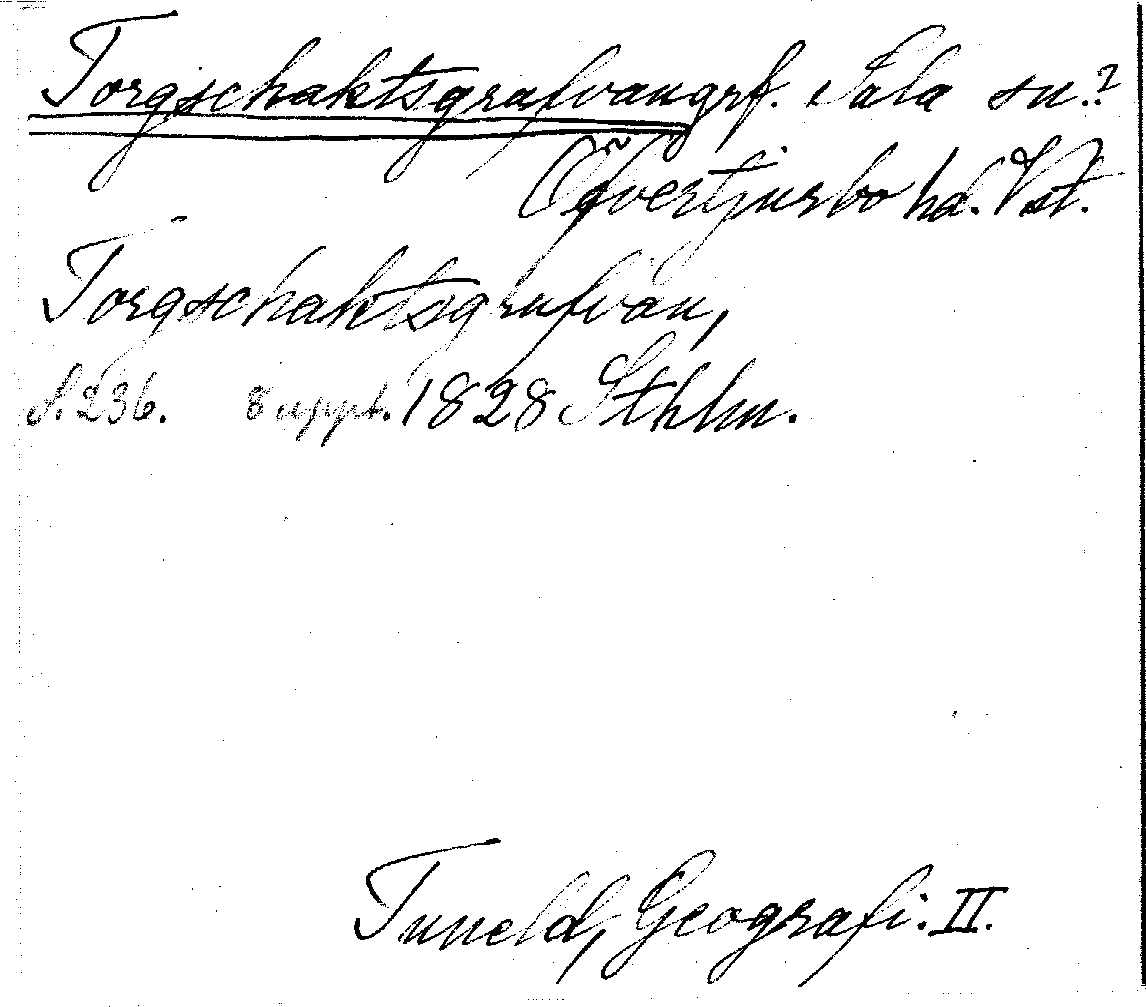 Torgschaktsgrafvan grf. Sala sn.?
Öfvertjurbo hd. Vst.
Torgschaktsgrafvan,
S. 236. 8 uppl. 1828 Sthlm.
Tuneld, Geografi. II.